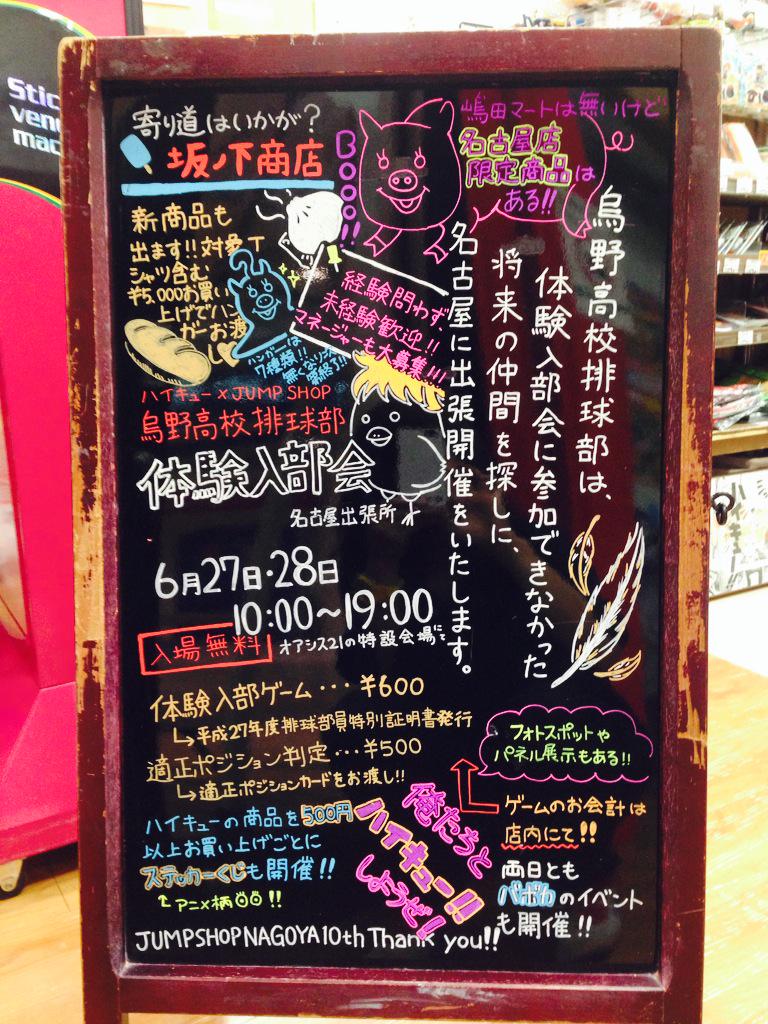 Stic
ven
mac
寄り道はいかが?
坂ノ下商店
新商品も
出ます!!対象T
シャツ含む
¥5,000お買い
上げでハン
ガーお渡
ハンガーは
7種類!!
BOOO!!
嶋田マートは無いけど
名古屋店
限定商品は
ある!!
経験問わず
未経験歓迎!!
マネージャーも大募集!!!
烏野高校排球部は、
体験入部会に参加できなかった
将来の仲間を探しに、
名古屋に出張開催をいたします。
ハイキュー×JUMP SHOP
烏野高校排球部
体験入部会
名古屋出張所
6月27日・28日
10:00〜19:00
入場無料
オアシス21の特設会場にて
体験入部ゲーム・・・¥600
↳平成27年度排球部員特別証明書発行
適正ポジション判定・・・¥500
↳適正ポジションカードをお渡し!!
フォトスポットや
パネル展示もある!!
ゲームのお会計は
店内にて!!
ハイキューの商品を500円
以上お買い上げごとに
ステッカーくじも開催!!
アニメ柄!!
俺たちと
ハイキュー!!
しようぜ!
両日とも
バボカのイベント
も開催!!
JUMPSHOPNAGOYA10th Thank you!!